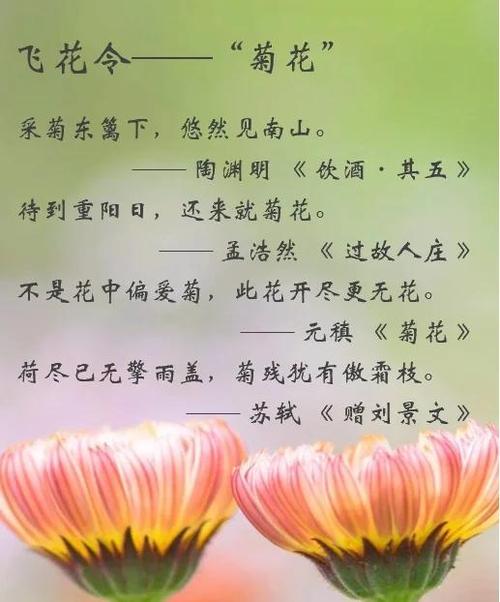 飞花令——“菊花”
采菊东篱下，悠然见南山。
——陶渊明《饮酒·其五》
待到重阳日，还来就菊花。
——孟浩然《过故人庄》
不是花中偏爱菊，此花开尽更无花。
——元稹《菊花》
荷尽已无擎雨盖，菊残犹有傲霜枝。
——苏轼《赠刘景文》